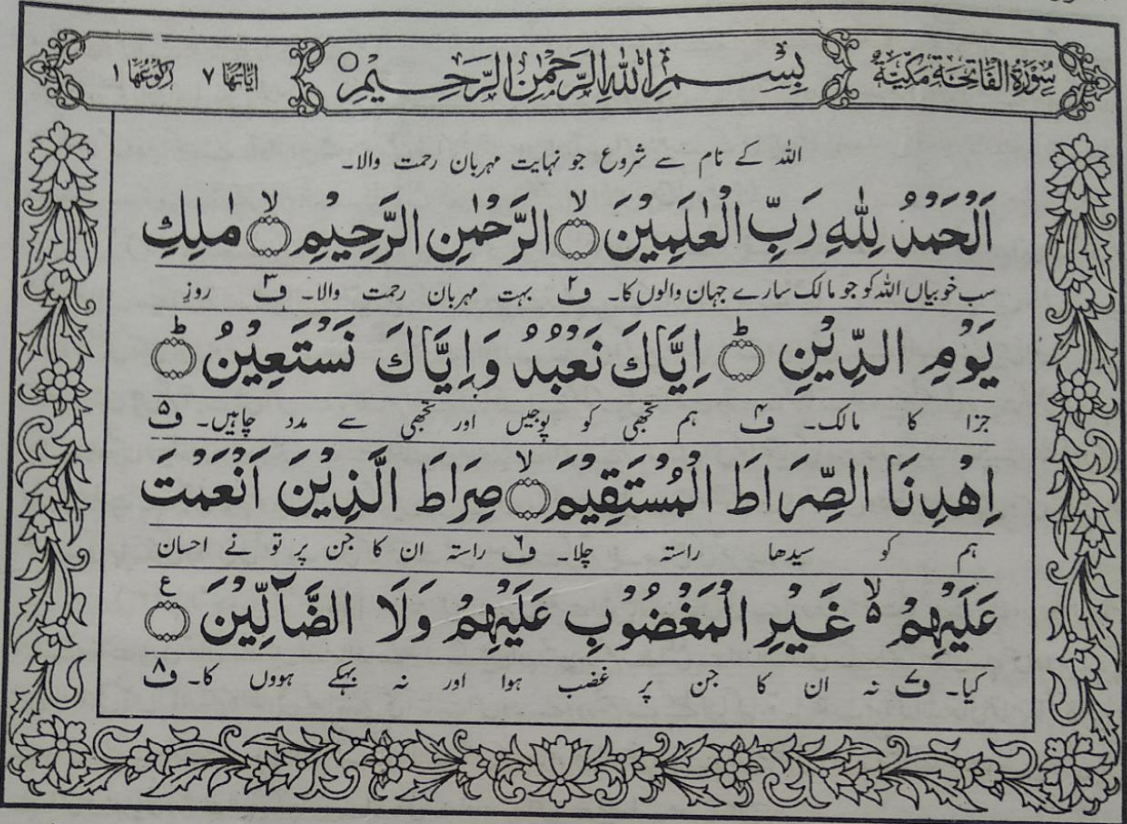 سُوْرَةُ الْفَاتِحَةِ مَكِّيَّةٌ بِسْمِ اللّٰهِ الرَّحْمٰنِ الرَّحِيْمِ اٰيَاتُهَا ۷ رُكُوْعُهَا ۱
اللہ کے نام سے شروع جو نہایت مہربان رحمت والا۔
اَلْحَمْدُ لِلّٰهِ رَبِّ الْعٰلَمِيْنَ ۝ۙ الرَّحْمٰنِ الرَّحِيْمِ ۝ۙ مٰلِكِ
سب خوبیاں اللہ کو جو مالک سارے جہان والوں کا۔ ف۲ بہت مہربان رحمت والا۔ ف۳ روزِ
يَوْمِ الدِّيْنِ ۝ؕ اِيَّاكَ نَعْبُدُ وَاِيَّاكَ نَسْتَعِيْنُ ۝ؕ
جزا کا مالک۔ ف۴ ہم تجھی کو پوجیں اور تجھی سے مدد چاہیں۔ ف۵
اِهْدِنَا الصِّرَاطَ الْمُسْتَقِيْمَ ۝ۙ صِرَاطَ الَّذِيْنَ اَنْعَمْتَ
ہم کو سیدھا راستہ چلا۔ ف۶ راستہ ان کا جن پر تو نے احسان
عَلَيْهِمْ ۙ۬ غَيْرِ الْمَغْضُوْبِ عَلَيْهِمْ وَلَا الضَّآلِّيْنَ ۝ع
کیا۔ ف۷ نہ ان کا جن پر غضب ہوا اور نہ بہکے ہووں کا۔ ف۸